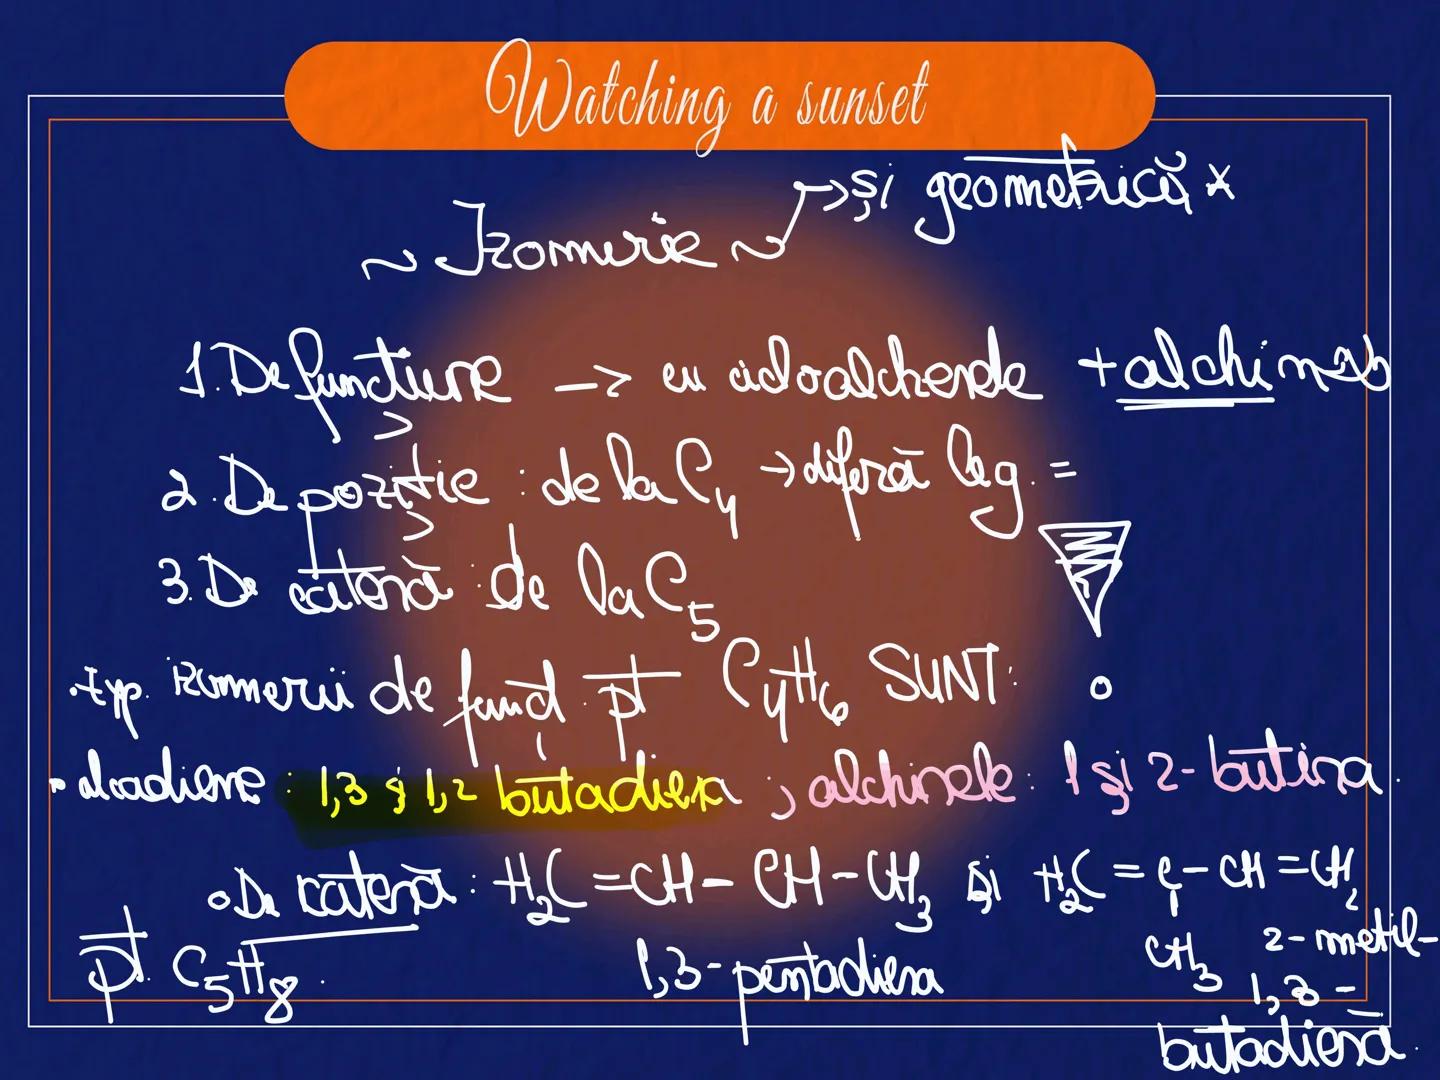 Watching a sunset
~ Izomerie ~ → și geometrică *
1. De funcțiune -> cu cicloalchenele + alchinele
2. De poziție : de la C4 → diferă leg. =
3. De catenă : de la C5
• Exp. izomerii de funcț. pt C4H6 SUNT:
- alcadiene : 1,3 și 1,2 butadiena ; alchinele : 1 și 2-butina.
• De catenă : H2C=CH-CH-CH3 și H2C=C-CH=CH2
pt. C5H8. 1,3-pentadiena CH3 2-metil-
1,3-
butadienă.